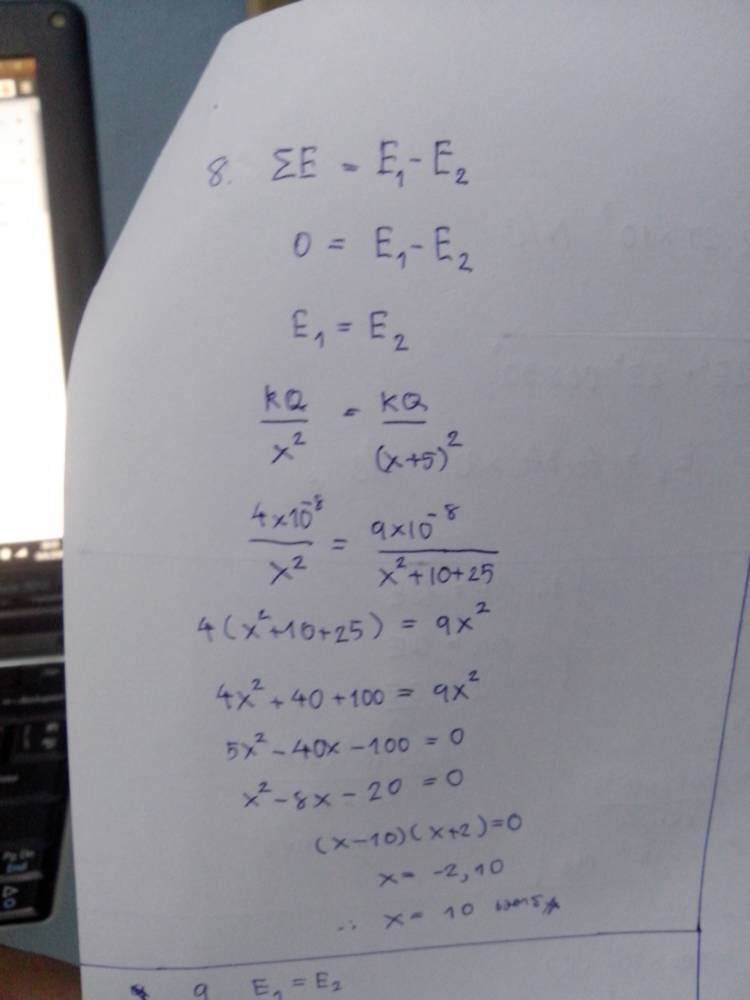 8. ΣE = E₁ - E₂
0 = E₁ - E₂
E₁ = E₂
kQ/x² = kQ/(x+5)²
4×10⁻⁸/x² = 9×10⁻⁸/x²+10+25
4(x²+10+25) = 9x²
4x²+40+100 = 9x²
5x²-40x-100 = 0
x²-8x-20 = 0
(x-10)(x+2)=0
x= -2,10
∴ x= 10 เมตร
9 E₁ = E₂